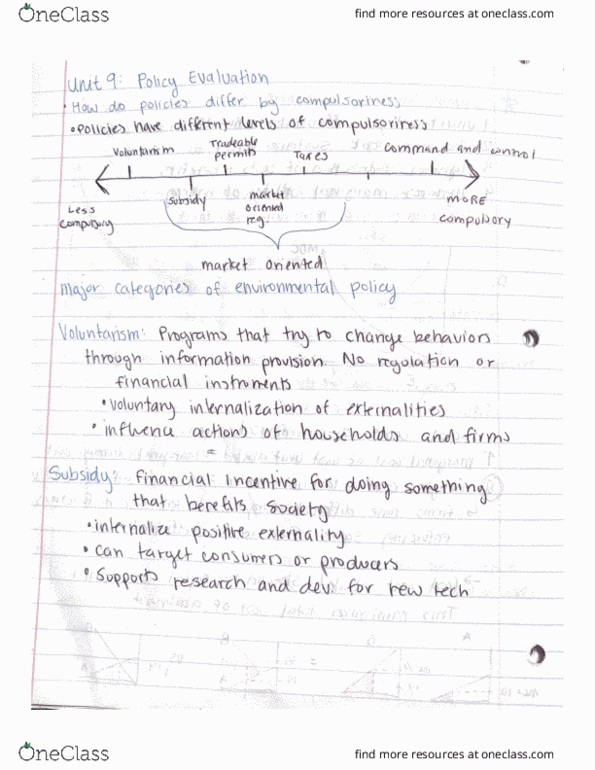 OneClass
find more resources at oneclass.com
Unit 9: Policy Evaluation
• How do policies differ by compulsoriness
• policies have different levels of compulsoriness
Voluntarism Tradeable permits Taxes command and control
subsidy market oriented reg.
Less compulsory
MORE compulsory
market oriented
major categories of environmental policy
Voluntarism: Programs that try to change behaviors
through information provision. No regulation or
financial instruments
• voluntary internalization of externalities
• influence actions of households and firms
Subsidy: financial incentive for doing something
that benefits society
• internalize positive externality
• can target consumers or producers
• Supports research and dev. for new tech
OneClass
find more resources at oneclass.com